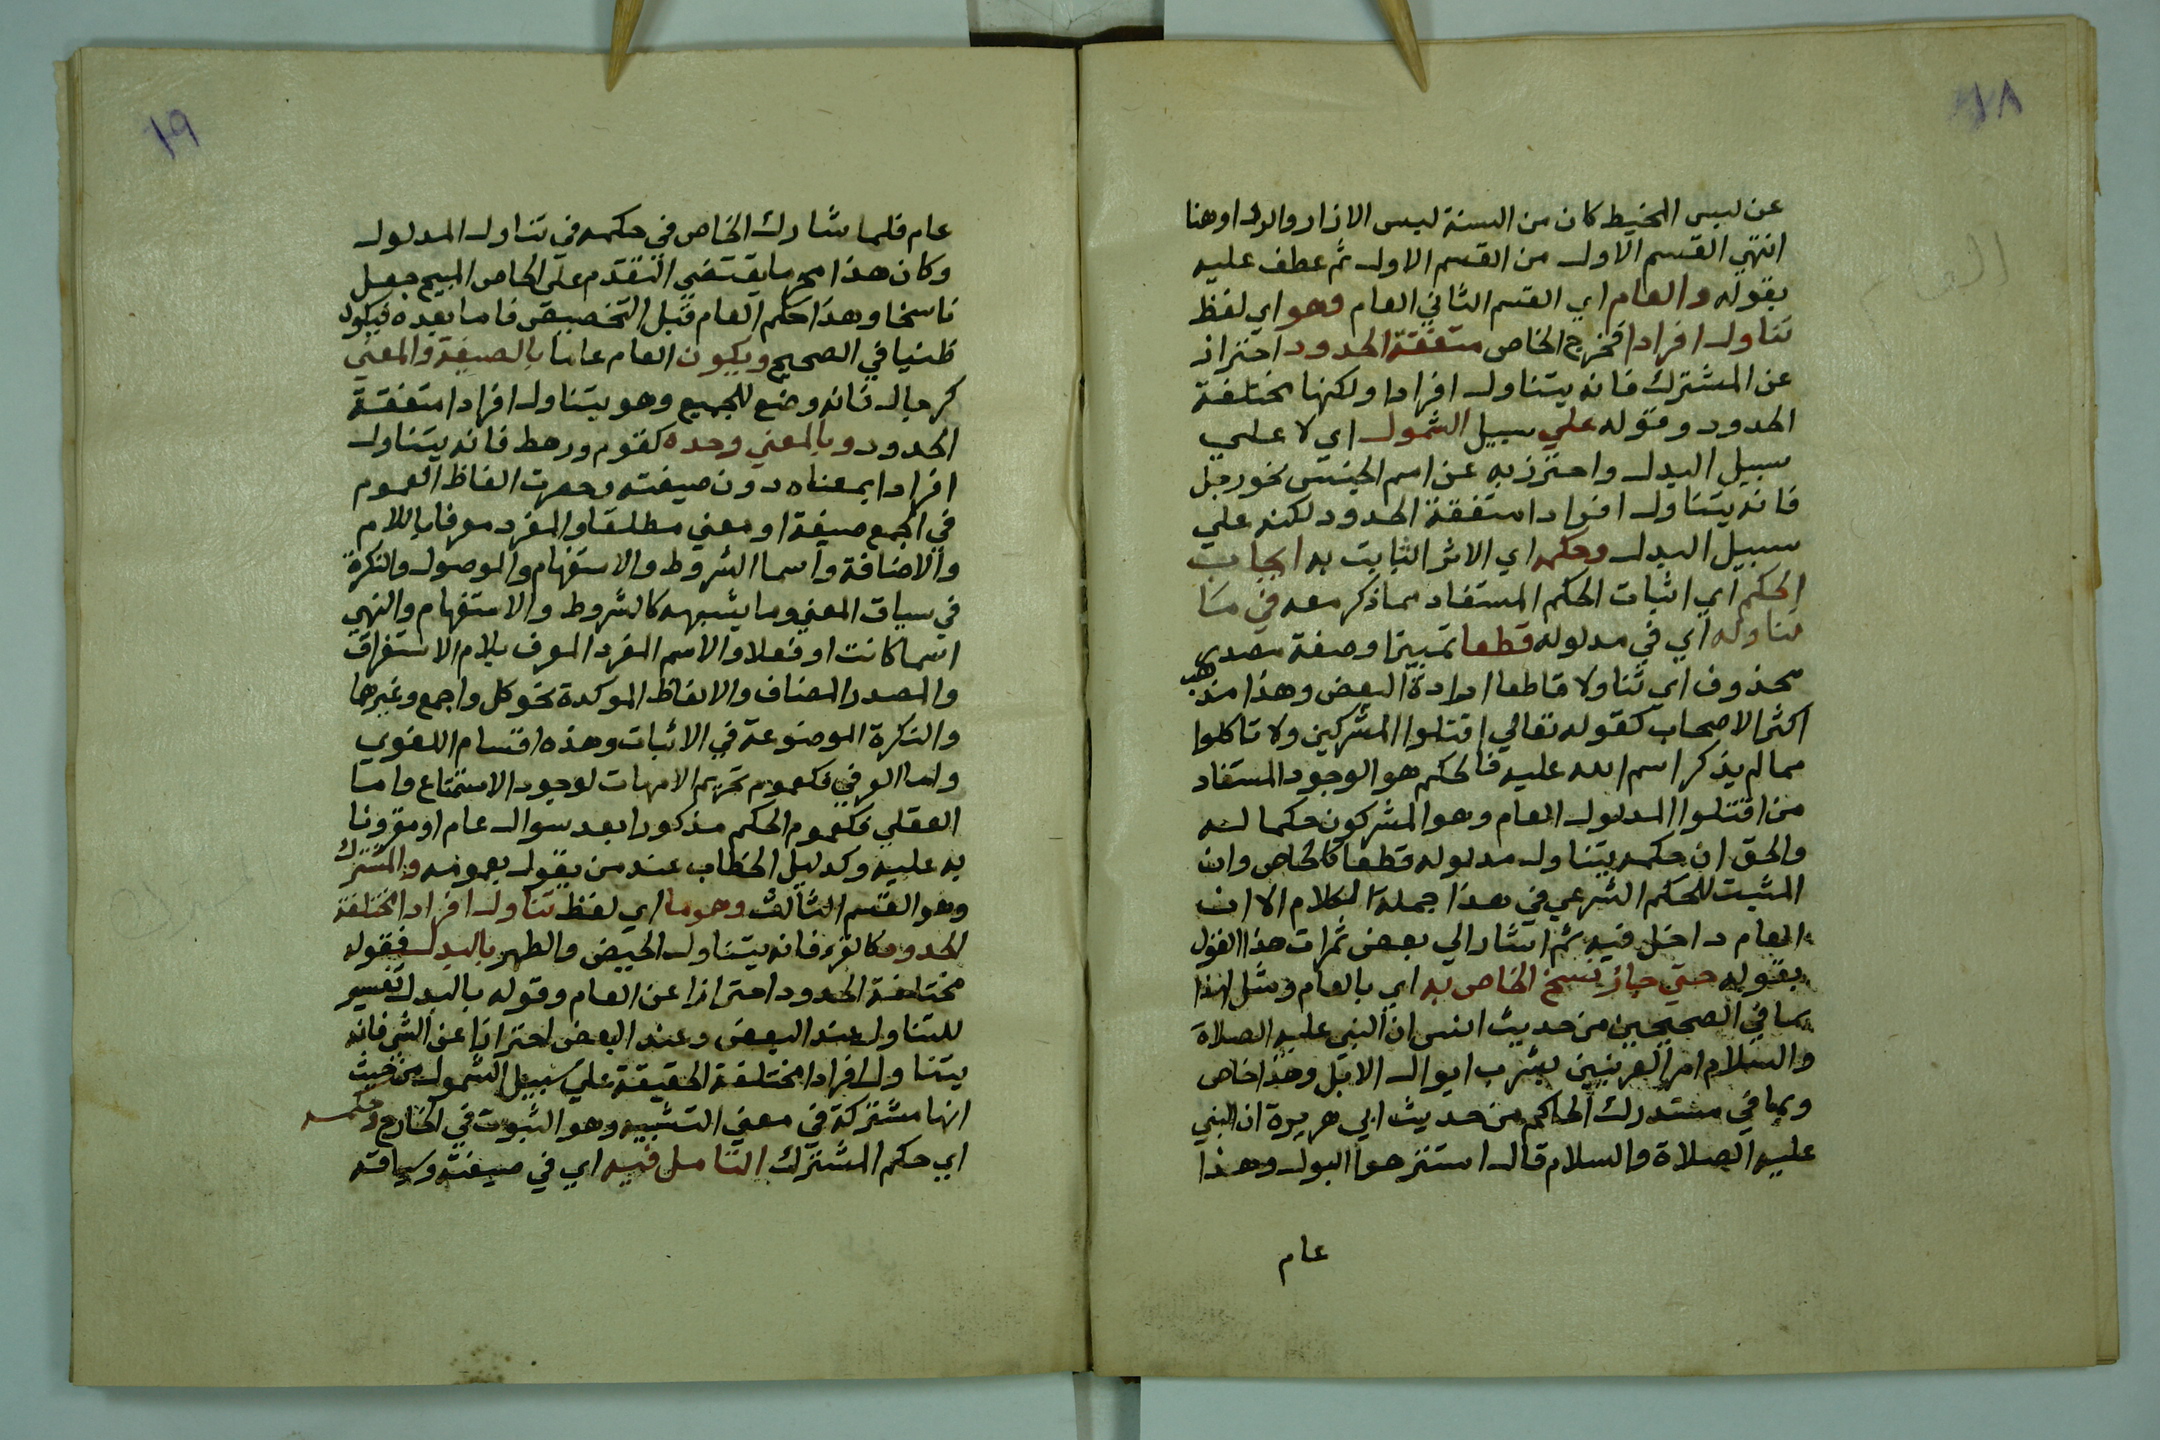 ١٨
عن لبس المخيط كان من السنة لبس الازار والردا وهنا
انتهي القسم الاول من القسم الاول ثم عطف عليه
بقوله والعام اي القسم الثاني العام وهو اي لفظ
تناول افرادا فخرج الخاص متفقة الحدود احتراز
عن المشترك فانه يتناول افرادا ولكنها مختلفة
الحدود وقوله علي سبيل الشمول اي لا علي
سبيل البدل واحترز به عن اسم الجنس نحو رجل
فانه يتناول افرادا متفقة الحدود لكنه علي
سبيل البدل وحكمه اي الاثر الثابت به ايجاب
الحكم اي اثبات الحكم المستفاد مما ذكر معه في ما
تناوله اي في مدلوله قطعا تمييز او صفة مصدر
محذوف اي تناولا قاطعا ارادة البعض وهذا مذهب
اكثر الاصحاب كقوله تعالي اقتلوا المشركين ولا تاكلوا
مما لم يذكر اسم الله عليه فالحكم هو الوجود المستفاد
من اقتلوا المدلول العام وهو المشركون حكما له
والحق ان حكمه يتناول مدلوله قطعا كالخاص وان
المثبت للحكم الشرعي في هذا جملة الكلام الا ان
العام داخل فيه ثم اشار الي بعض ثمرات هذا القول
بقوله حتي جاز نسخ الخاص به اي بالعام ومثل لهذا
بما في الصحيحين من حديث انس ان النبي عليه الصلاة
والسلام امر العرنيين بشرب ابوال الابل وهذا خاص
وبما في مستدرك الحاكم من حديث ابي هريرة ان النبي
عليه الصلاة والسلام قال استنزهوا البول وهذا
عام
١٩
عام فلما شارك الخاص في حكمه في تناول المدلول
وكان هذا محرما يقتضي التقدم علي الخاص المبيح جعل
ناسخا وهذا حكم العام قبل التخصيص فاما بعده فيكون
ظنيا في الصحيح ويكون العام عاما بالصيغة والمعني
كرجال فانه وضع للجميع وهو يتناول افرادا متفقة
الحدود وبالمعني وحده كقوم ورهط فانه يتناول
افرادا بمعناه دون صيغته وحصرت الفاظ العموم
في الجمع صيغة او معني مطلقا والمفرد معرفا باللام
والاضافة واسما الشروط والاستفهام والموصول والنكرة
في سياق المعني وما يشبهه كالشروط والاستفهام والنهي
اسما كانت او فعلا والاسم المفرد المعرف بلام الاستغراق
والمصدر المضاف والالفاظ الموكدة نحو كل واجمع وغيرها
والنكرة الموضوعة في الاثبات وهذه اقسام اللغوي
واما العرفي فكعموم تحريم الامهات لوجود الاستمتاع واما
العقلي فكعموم الحكم مذكورا بعد سوال عام او مقرونا
به عليه وكدليل الخطاب عند من يقول بعمومه والمشترك
وهو القسم الثالث وهو ما اي لفظ تناول افرادا مختلفة
الحدود كالقرء فانه يتناول الحيض والطهر بالبدل فقوله
مختلفة الحدود احترازا عن العام وقوله بالبدل تفسير
للتناول عند البعض وعند البعض احترازا عن الشي فانه
يتناول افرادا مختلفة الحقيقة علي سبيل الشمول من حيث
انها مشتركة في معني التشبيه وهو الثبوت في الخارج وحكمه
اي حكم المشترك التامل فيه اي في صيغته وسياقته